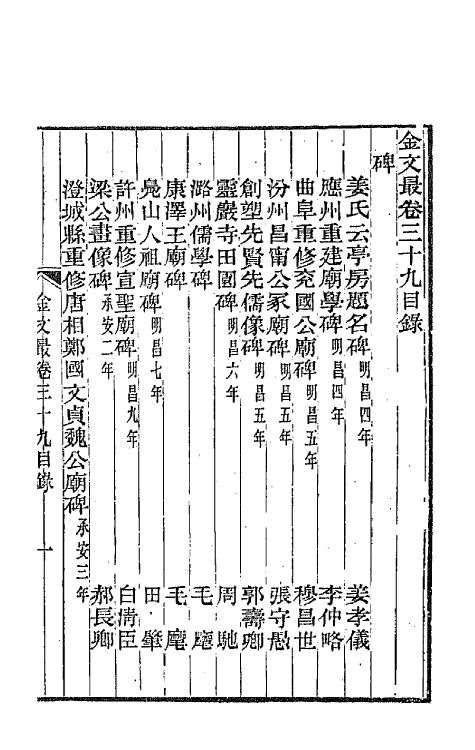 金文最卷三十九目錄
碑
姜氏云亭房題名碑明昌四年 姜孝儀
應州重建廟學碑明昌四年 李仲略
曲阜重修兖國公廟碑明昌五年 穆昌世
汾州昌甯公冢廟碑明昌五年 張守愚
創塑先賢先儒像碑明昌五年 郭壽卿
靈巖寺田園碑明昌六年 周馳
潞州儒學碑 毛麾
康澤王廟碑 毛麾
鳧山人祖廟碑明昌七年 田肇
許州重修宣聖廟碑明昌九年 白清臣
梁公畫像碑承安二年 郝長卿
澄城縣重修唐相鄭國文貞魏公廟碑承安三年
金文最卷三十九目錄 一